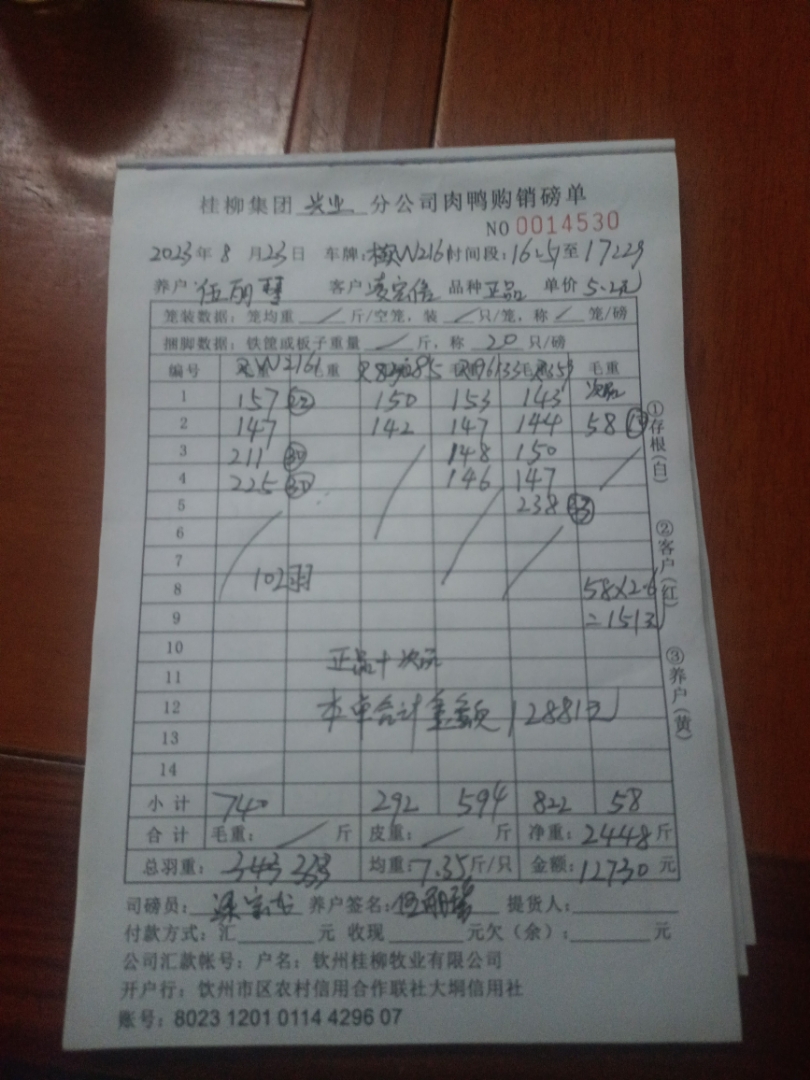 桂柳集团 兴业 分公司肉鸭购销磅单
NO 0014530
2023年 8 月23日 车牌: W216 时间段: 至
养户 客户 品种 正品 单价 5.2元
笼装数据: 笼均重 / 斤/空笼, 装 / 只/笼, 称 / 笼/磅
捆脚数据: 铁筐或板子重量 / 斤, 称 20 只/磅
编号 W2161 重 毛重
1 157 22 150 153 143 次品
2 147 142 147 144 58
3 211 30 148 150
4 225 146 147
5 238 33
6
7
8 102羽 58×2.6
9 =151元
10
11 正品+次品
12 本单合计金额12881元
13
14
小计 740 292 594 822 58
合计 毛重: / 斤 皮重: / 斤 净重: 2448 斤
总羽重: 343 333 均重: 7.35 斤/只 金额: 12730 元
司磅员: 养户签名: 提货人:
付款方式: 汇 元 收现 元欠(余): 元
公司汇款帐号: 户名: 钦州桂柳牧业有限公司
开户行: 钦州市区农村信用合作联社大垌信用社
账号: 8023 1201 0114 4296 07
①存根(白)
②客户(红)
③养户(黄)